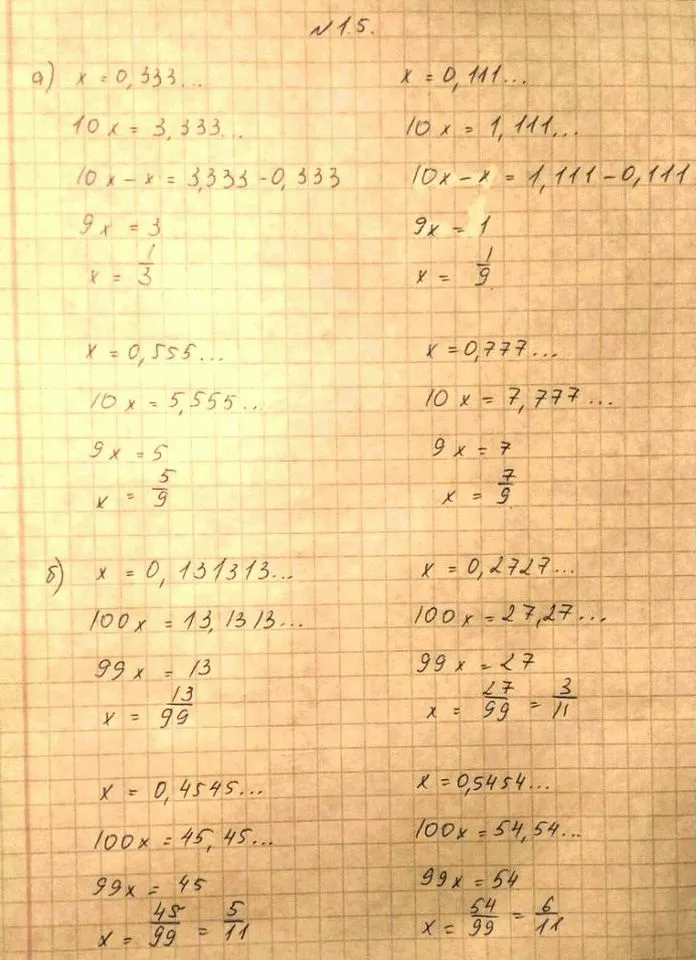 № 1.5.
а) x = 0,333...
10x = 3,333...
10x - x = 3,333 - 0,333
9x = 3
x = 1/3
x = 0,111...
10x = 1,111...
10x - x = 1,111 - 0,111
9x = 1
x = 1/9
x = 0,555...
10x = 5,555...
9x = 5
x = 5/9
x = 0,777...
10x = 7,777...
9x = 7
x = 7/9
б) x = 0,131313...
100x = 13,1313...
99x = 13
x = 13/99
x = 0,2727...
100x = 27,27...
99x = 27
x = 27/99 = 3/11
x = 0,4545...
100x = 45,45...
99x = 45
x = 45/99 = 5/11
x = 0,5454...
100x = 54,54...
99x = 54
x = 54/99 = 6/11